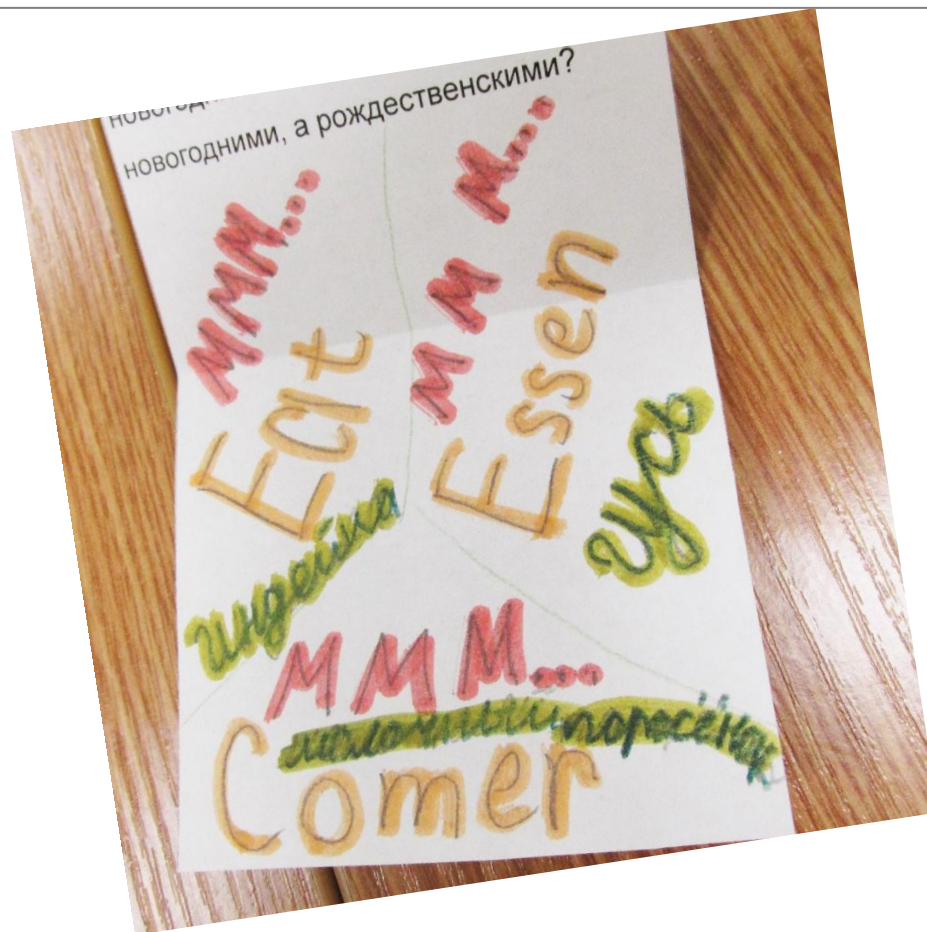 новогодними, а рождественскими?
МММ...
Eat
индейка
М М М...
Essen
гусь
МММ...
молочный поросёнок
Comer